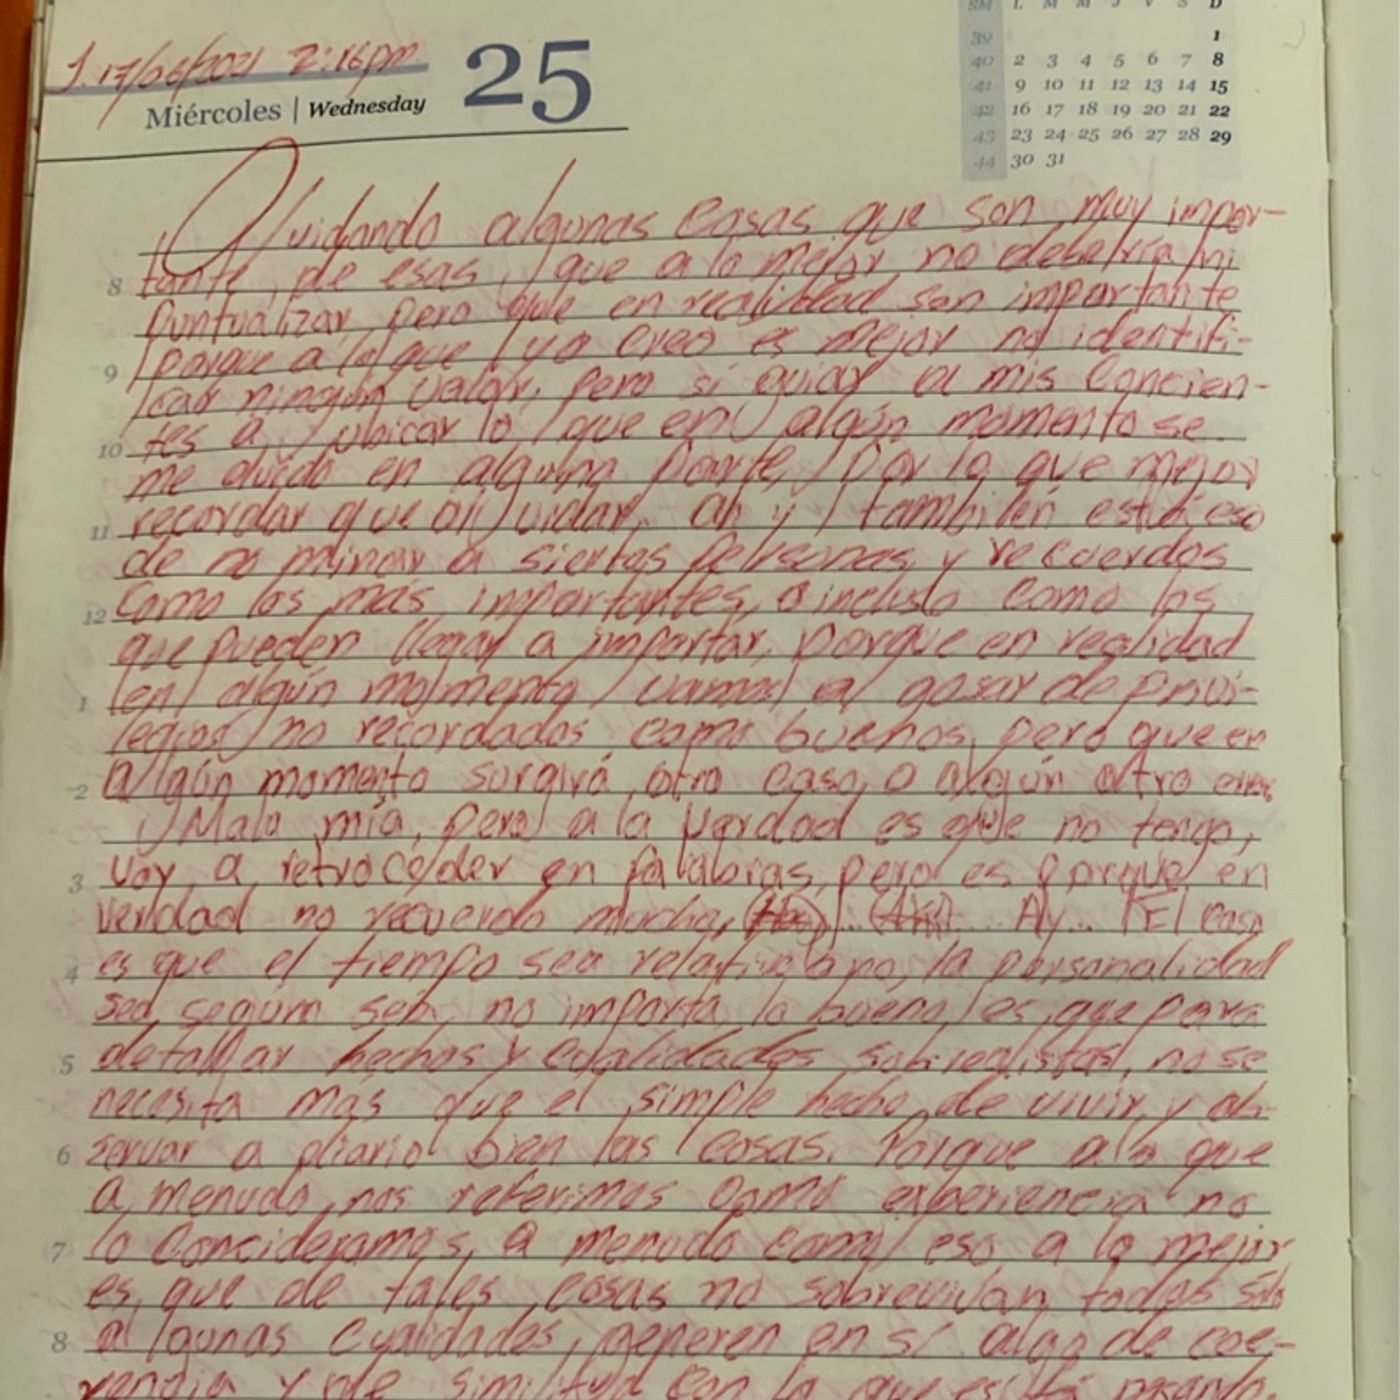 J. 17/06/2021 2:16pm
Miércoles | Wednesday 25
SM L M M J V S D
39 1
40 2 3 4 5 6 7 8
41 9 10 11 12 13 14 15
42 16 17 18 19 20 21 22
43 23 24 25 26 27 28 29
44 30 31
Olvidando algunas cosas que son muy impor-
8 tante, de esas, que a lo mejor no debería ni
puntualizar, pero que en realidad son importante
9 porque a lo que yo creo es mejor no identifi-
car ningún valor, pero sí guiar a mis concien-
10 tes a ubicar lo que en algún momento se
me olvido en alguna parte, por lo que mejor
11 recordar que olvidar, ah y también está eso
de no minar a siertas personas y recuerdos
12 como los más importantes, o incluso como los
que pueden llegar a importar, porque en realidad
1 en algún momento vamos a gosar de privi-
legios no recordados como buenos, pero que en
2 algún momento surgirá otro caso o algún otro
Mala mía, pero a la verdad es que no tengo,
3 voy a retroceder en palabras, pero es porque en
verdad no recuerdo mucho, ... Ay... El caso
4 es que el tiempo sea relativo o no, la personalidad
sea según sea, no importa, lo bueno es que para
5 detallar hechos y cualidades sobrealistas, no se
necesita más que el simple hecho de vivir y ob-
6 servar a diario bien las cosas. Porque a lo que
a menudo nos referimos como experiencia no
7 lo concideramos, a menudo como eso, a lo mejor
es que de tales cosas no sobrevivan todas sólo
8 algunas cualidades, generen en sí algo de coe-
rencia y de similitud con lo que está pasando